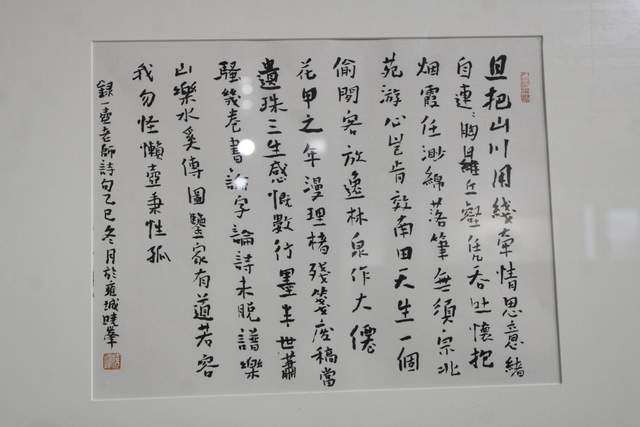 且把山川用綫牽情思意緒
自連〻胸羅丘壑凭吞吐懷抱
烟霞任渺綿落筆無須宗北
苑游心豈肯效南田天生一個
偷閑客放逸林泉作大僊
花甲之年漫理楮殘箋廢稿當
遺珠三生感慨數行墨半世蕭
騷幾卷書字論詩未脫譜樂
山樂水奚傳圖鑒家有道若容
我勿怪懶壺秉性孤
錄一壺老師詩句乙巳冬月於雍城曉峯